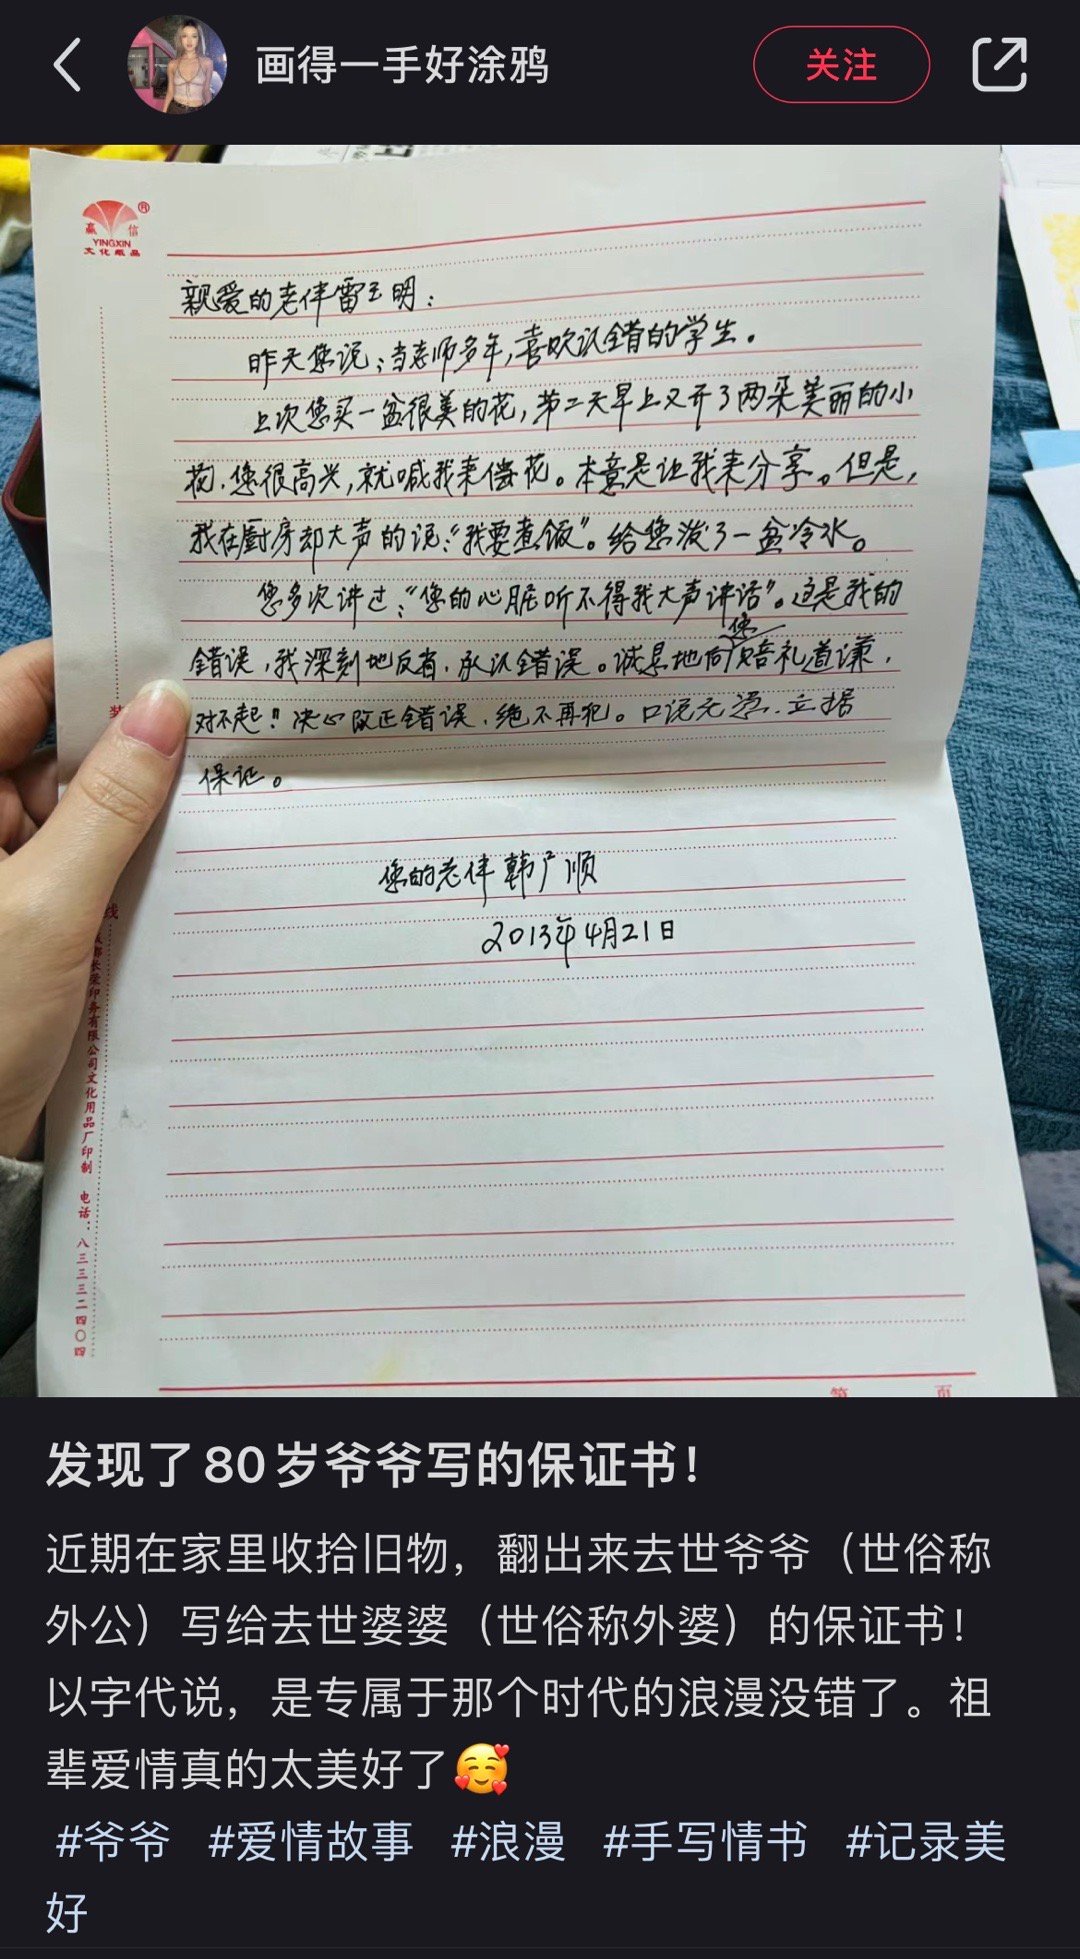 画得一手好涂鸦
关注
赢 信
YINGXIN
文化纸品
亲爱的老伴雷玉明：
昨天您说：当老师多年，喜欢认错的学生。
上次您买一盆很美的花，第二天早上又开了两朵美丽的小
花，您很高兴，就喊我来偿花。本意是让我来分享。但是，
我在厨房却大声的说：“我要煮饭”。给您泼了一盆冷水。
您多次讲过：“您的心脏听不得我大声讲话”。这是我的
错误，我深刻地反省，承认错误。诚恳地向您赔礼道谦，
对不起！！决心改正错误，绝不再犯。口说无凭，立据
保证。
您的老伴 韩广顺
2013年4月21日
装
线
印务有限公司文化用品厂印制 电话：八三三三二四〇四
第 页
发现了80岁爷爷写的保证书！
近期在家里收拾旧物，翻出来去世爷爷（世俗称
外公）写给去世婆婆（世俗称外婆）的保证书！
以字代说，是专属于那个时代的浪漫没错了。祖
辈爱情真的太美好了🥰
#爷爷 #爱情故事 #浪漫 #手写情书 #记录美
好